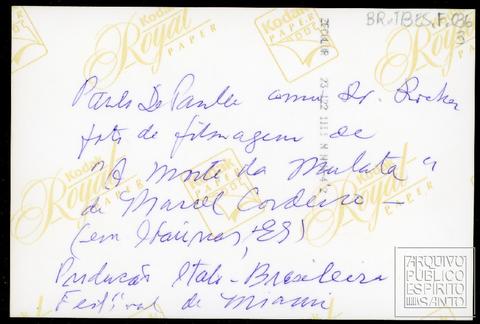 BR.TBES.F.036
3
Kodak
Royal
PAPER
Paulo De Paula como Dr. Rocha
foto de filmagem de
"A morte da Mulata"
de Marcel Cordeiro –
(em Itaúnas, ES)
Produção Italo-Brasileira
Festival de Miami
ARQUIVO
PÚBLICO
ESPÍRITO
SANTO